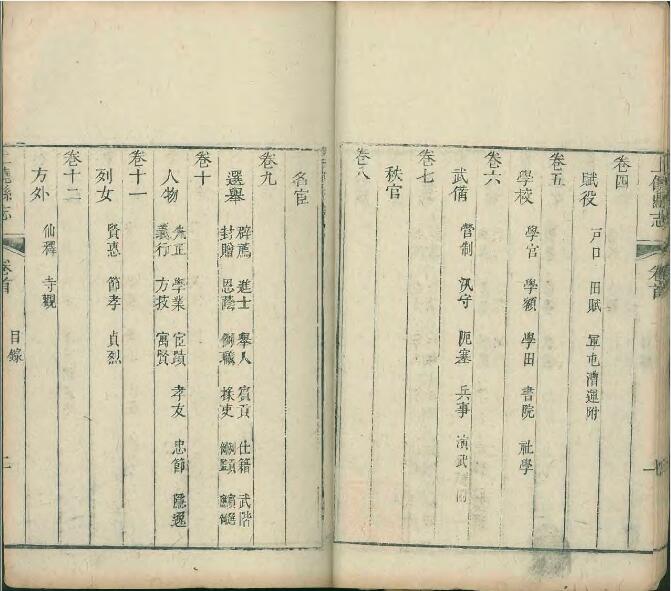 上饒縣志 卷首 一
卷四
賦役 戶口 田賦 軍屯漕運附
卷五
學校 學官 學額 學田 書院 社學
卷六
武備 營制 汛守 阨塞 兵事 演武
卷七
秩官
卷八
名宦
卷九
選舉 辟薦 進士 舉人 貢 仕籍 武階
封贈 恩蔭 例職 掾吏
卷十
人物 學業 宦蹟 孝友 忠節 隱逸
義行 方技 寓賢
卷十一
列女 賢惠 節孝 貞烈
卷十二
方外 仙釋 寺觀
上饒縣志 卷首 目錄 二